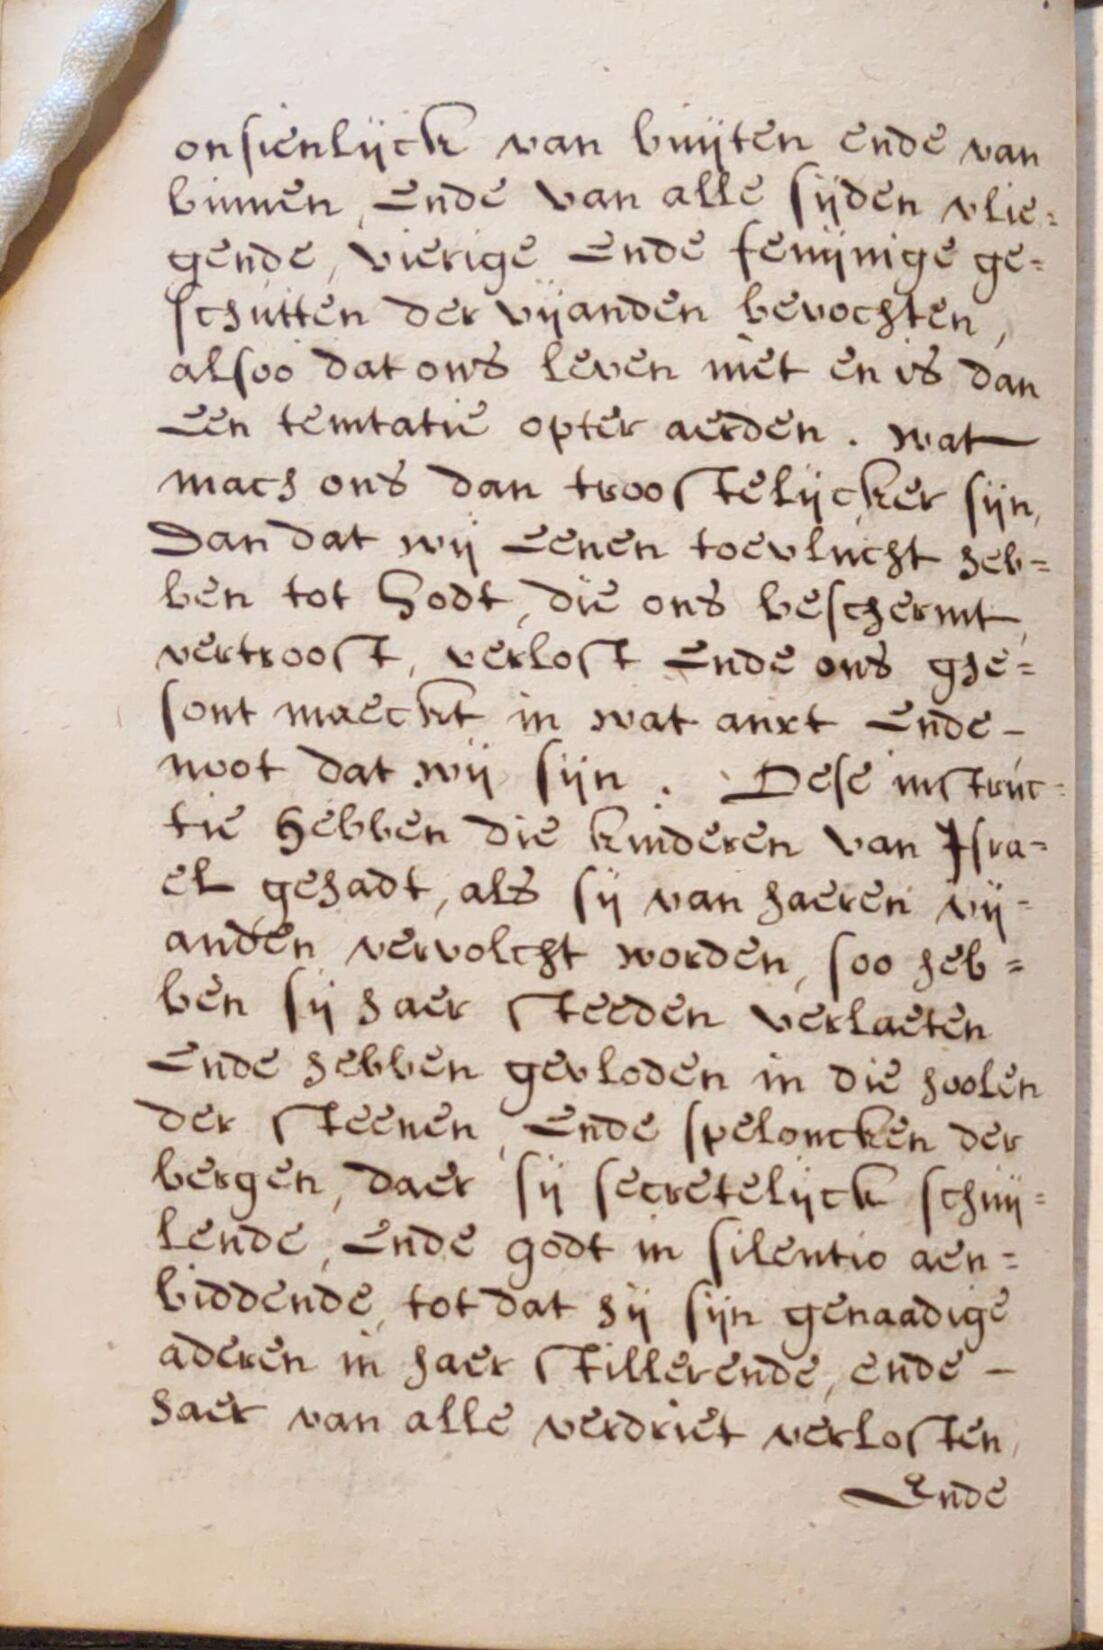 onsienlijck van buijten ende van
binnen, Ende van alle sijden vlie=
gende, vierige Ende fenijnige ge=
schutten der vijanden bevochten,
alsoo dat ons leven niet en is dan
Een temtatie opter aerden. wat
mach ons dan troostelijcker sijn,
Dan dat wij Eenen toevlucht heb=
ben tot Godt, die ons beschermt,
vertroost, verlost Ende ons ghe=
sont maeckt in wat anxt Ende –
noot dat wij sijn. Dese instruc=
tie hebben die kinderen van Isra=
el gehadt, als sij van haeren vij=
anden vervolcht worden, soo heb=
ben sij haer steeden verlaeten
Ende hebben gevloden in die hoolen
der steenen, Ende speloncken der
bergen, daer sij secretelijck schuij=
lende, Ende godt in silentio aen=
biddende, tot dat hij sijn genaadige
aderen in haer stillerende, ende –
haer van alle verdriet verlosten,
Ende